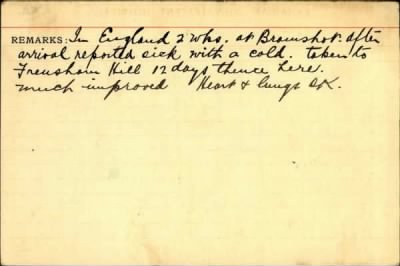 REMARKS: In England 2 wks. at Bramshot. after
arrival reported sick with a cold. taken to
Frensham Hill 12 days, thence here.
much improved Heart & lungs O.K.